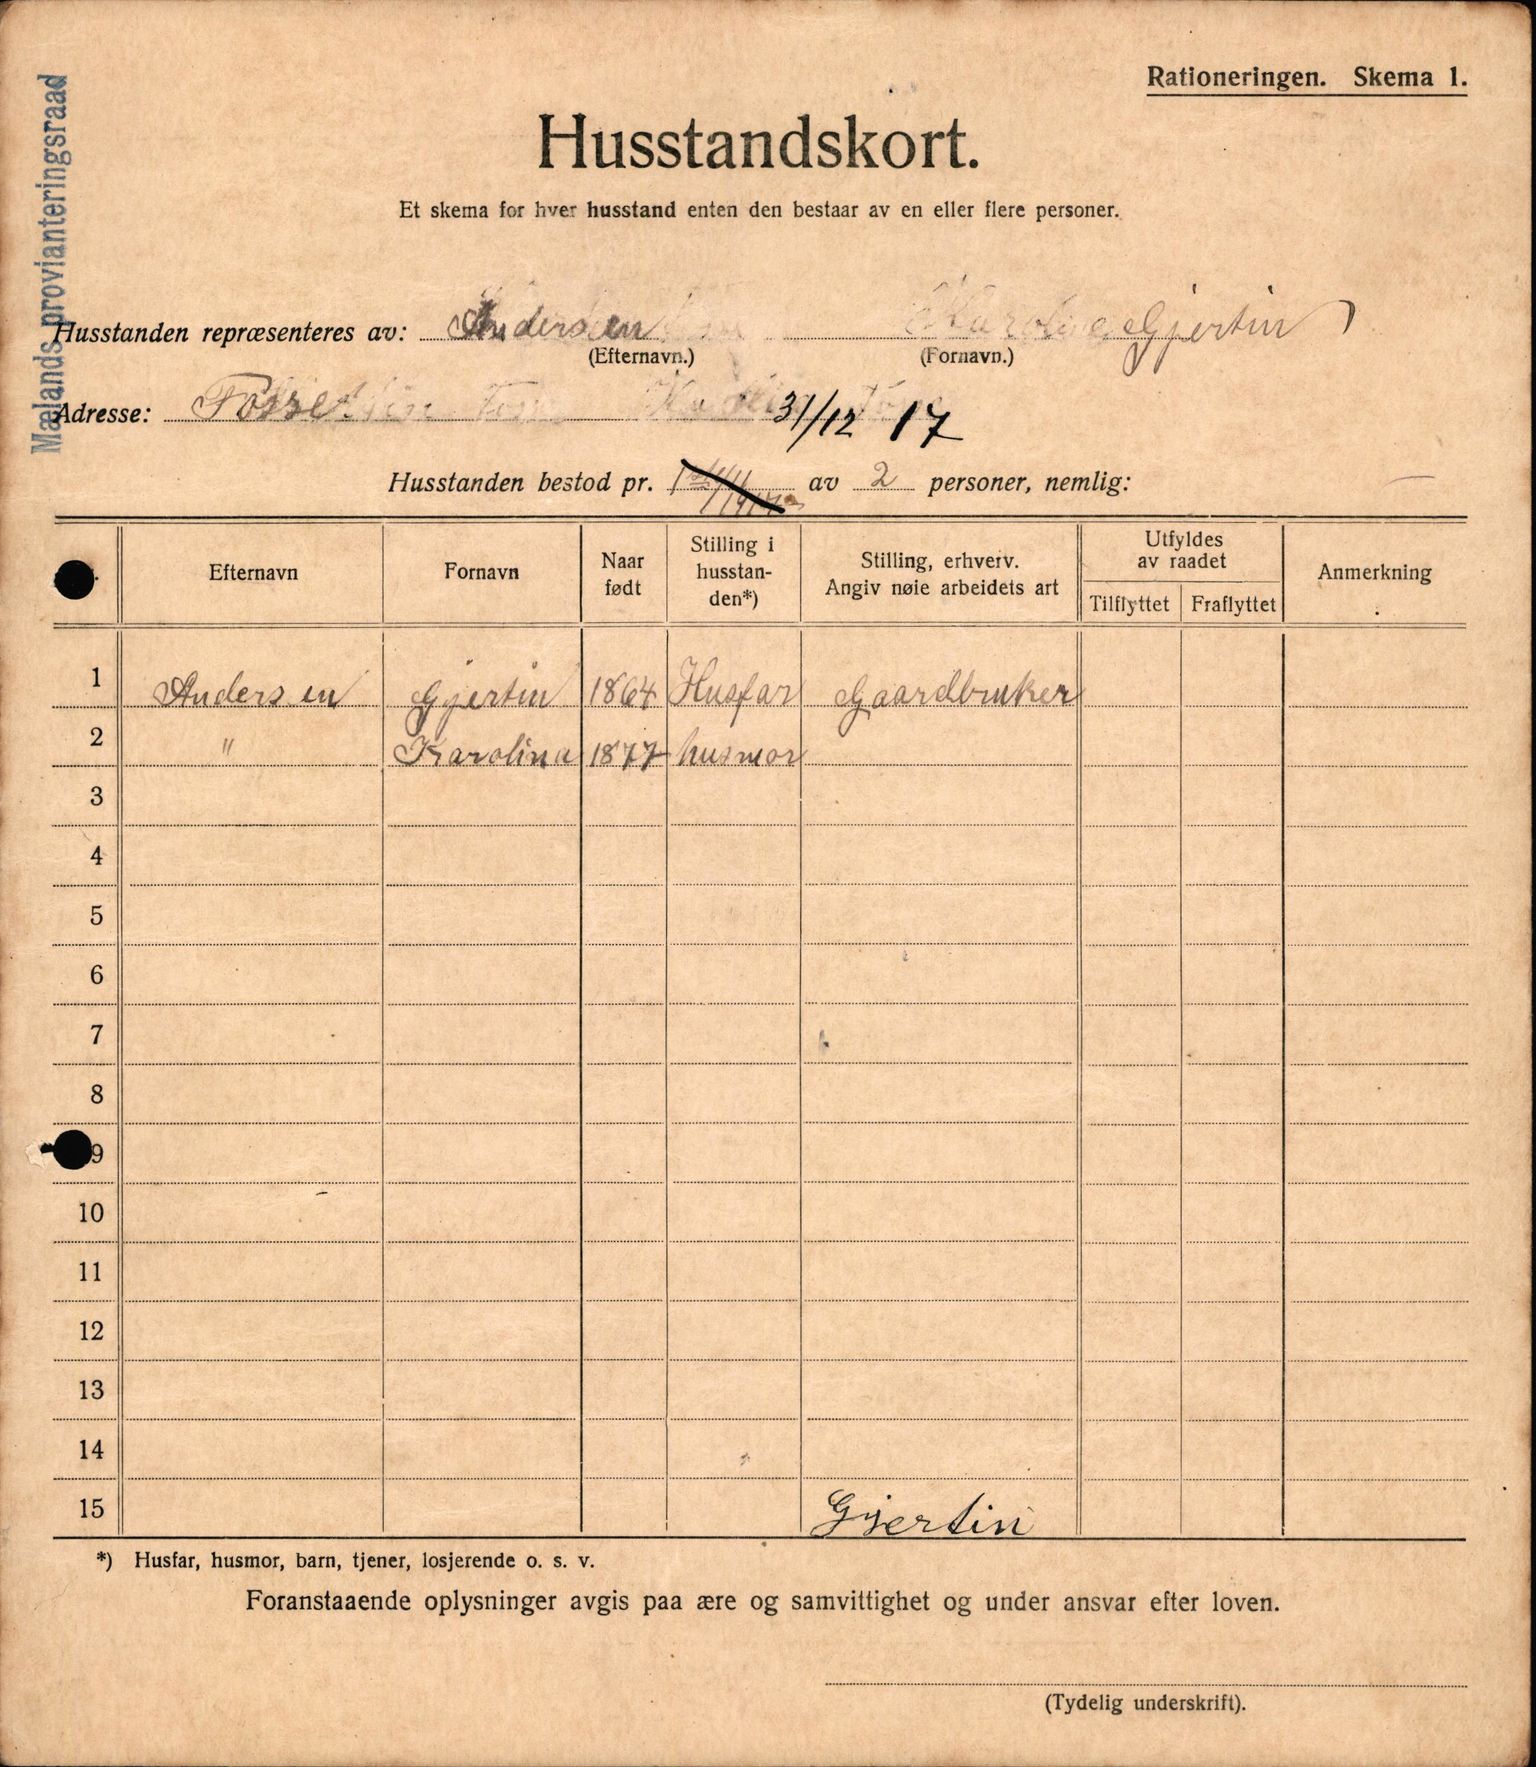 Malands provianteringsraad
Rationeringen. Skema 1.
Husstandskort.
Et skema for hver husstand enten den bestaar av en eller flere personer.
Husstanden repræsenteres av: Andersen Gjertin
(Efternavn.) (Fornavn.)
Adresse: 31/12 17
Husstanden bestod pr. av 2 personer, nemlig:
Efternavn Fornavn Naar født Stilling i husstanden*) Stilling, erhverv. Angiv nøie arbeidets art Utfyldes av raadet Tilflyttet Fraflyttet Anmerkning
1 Andersen Gjertin 1864 Husfar Gaardbruker
2 " Karolina 1877 husmor
3
4
5
6
7
8
9
10
11
12
13
14
15 Gjertin
*) Husfar, husmor, barn, tjener, losjerende o. s. v.
Foranstaaende oplysninger avgis paa ære og samvittighet og under ansvar efter loven.
(Tydelig underskrift).